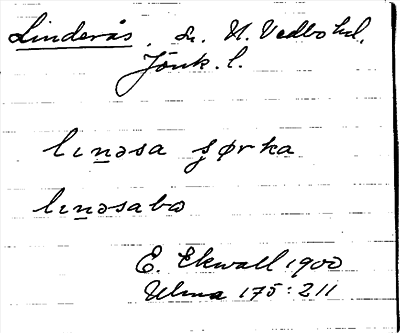 Linderås. sn. N. Vedbo hd.
Jönk. l.
lınəsa ʂørka
lınəsabω
E. Ekwall 1900
Ulma 175:211